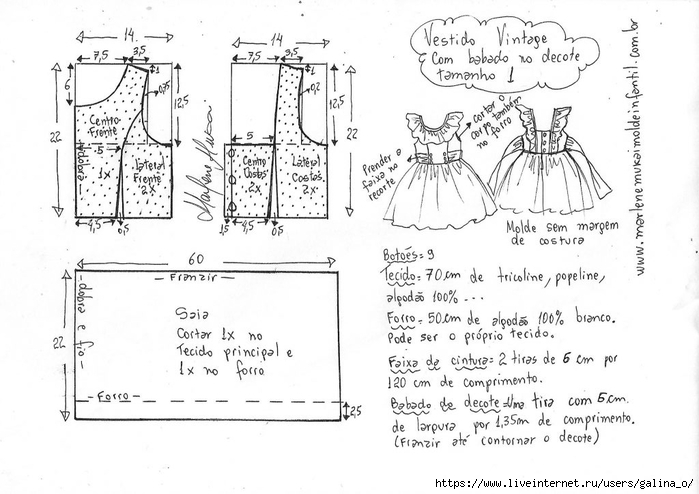 Vestido Vintage
Com babado no decote
tamanho 1
14
7,5
3,5
1
6
0,75
12,5
22
Centro
Frente
5
1x
Dobra
Lateral
Frente
2x
4,5
0,5
14
7,5
3,5
1
0,2
12,5
22
5
Centro
Costas
2x
Lateral
Costas
2x
1,5
4,5
0,5
Marlene Mukai
Cortar o
corpo também
no forro
Prender a
faixa no
recorte
Molde sem margem
de costura
www.marlenemukaimoldeinfantil.com.br
60
— Franzir —
dobra e fio
22
Saia
Cortar 1x no
Tecido principal e
1x no forro
— Forro —
2,5
Botões= 9
Tecido= 70cm de tricoline, popeline,
algodão 100% ...
Forro= 50cm de algodão 100% branco.
Pode ser o próprio tecido.
Faixa da cintura= 2 tiras de 6 cm por
120 cm de comprimento.
Babado do decote= Uma tira com 5cm.
de largura por 1,35m de comprimento.
(Franzir até contornar o decote)
https://www.liveinternet.ru/users/galina_o/